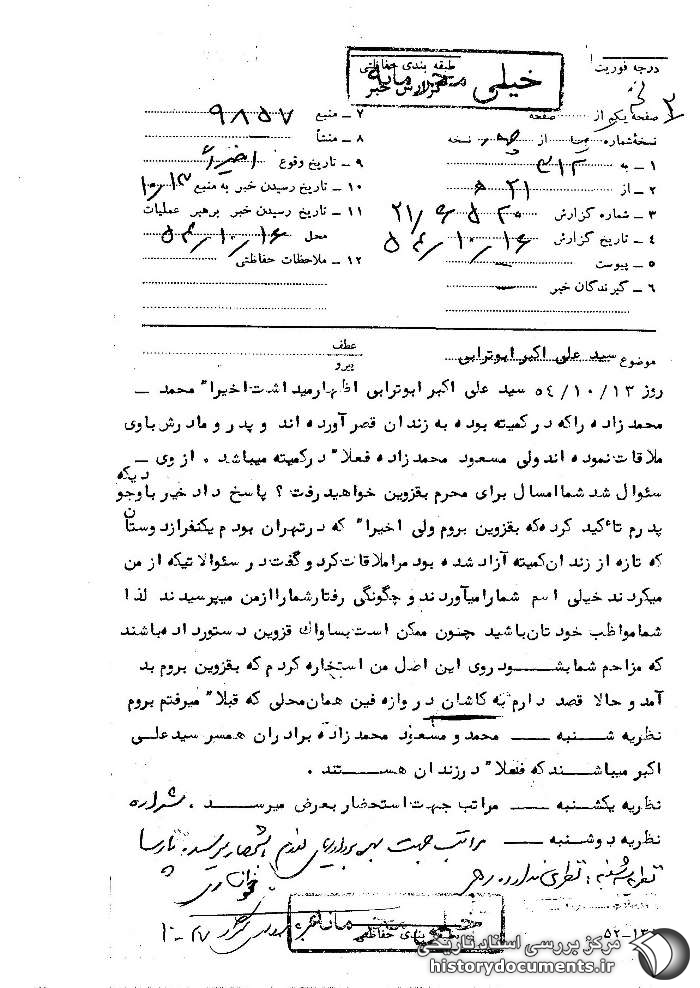 درجه فوریت
طبقه بندی حفاظتی
خیلی محرمانه
گزارش خبر
صفحه یک از صفحه
نسخهٔ شماره از نسخه
۱ ـ به ۳۱۲
۲ ـ از ۲۱ ه
۳ ـ شماره گزارش
۴ ـ تاریخ گزارش ۵۴/۱۰/۱۶
۵ ـ پیوست
۶ ـ گیرندگان خبر
۷ ـ منبع ۹۸۵۷
۸ ـ منشأ
۹ ـ تاریخ وقوع اخیراً
۱۰ ـ تاریخ رسیدن خبر به منبع ۱۰/۱۳
۱۱ ـ تاریخ رسیدن خبر برهبر عملیات
محل ۵۴/۱۰/۱۶
۱۲ ـ ملاحظات حفاظتی
موضوع سید علی اکبر ابوترابی
عطف
پیرو
روز ۵۴/۱۰/۱۳ سید علی اکبر ابوترابی اظهارمیداشت اخیرا" محمد ـ
محمدزاده راکه درکمیته بوده به زندان قصر آورده اند و پدر و مادرش باوی
ملاقات نموده اند ولی مسعود محمدزاده فعلا" درکمیته میباشد . از وی ـ
سئوال شد شما امسال برای محرم بقزوین خواهید رفت ؟ پاسخ داد خیر باوجودیکه
پدرم تاءکید کرده که بقزوین بروم ولی اخیرا" که درتهران بودم یکنفراز دوستان
که تازه از زندان کمیته آزاد شده بود مرا ملاقات کرد و گفت در سئوالاتیکه از من
میکردند خیلی اسم شمارا میآوردند و چگونگی رفتار شما را ازمن میپرسیدند لذا
شما مواظب خودتان باشید چنون ممکن است بساواک قزوین دستور داده باشند
که مزاحم شما بشـود روی این اصل من استخاره کردم که بقزوین بروم بد
آمد و حالا قصد دارم به کاشان دروازه فین همان محلی که قبلا" میرفتم بروم
نظریه شـنبه ــ محمد و مسعود محمدزاده برادران همسر سید علـی
اکبر میباشـند که فعلا" درزندان هسـتند .
نظریه یکشنبه ــ مراتب جهت استحضار بعرض میرسـد . شراره
نظریه دوشنبه ــ مراتب جهت بهره برداریهای لازم باستحضار میرسد. پارسا
نظریه سه شنبه : نظری ندارد. رهبر
خیلی محرمانه
طبقه بندی حفاظتی
مرکز بررسی اسناد تاریخی
historydocuments.ir